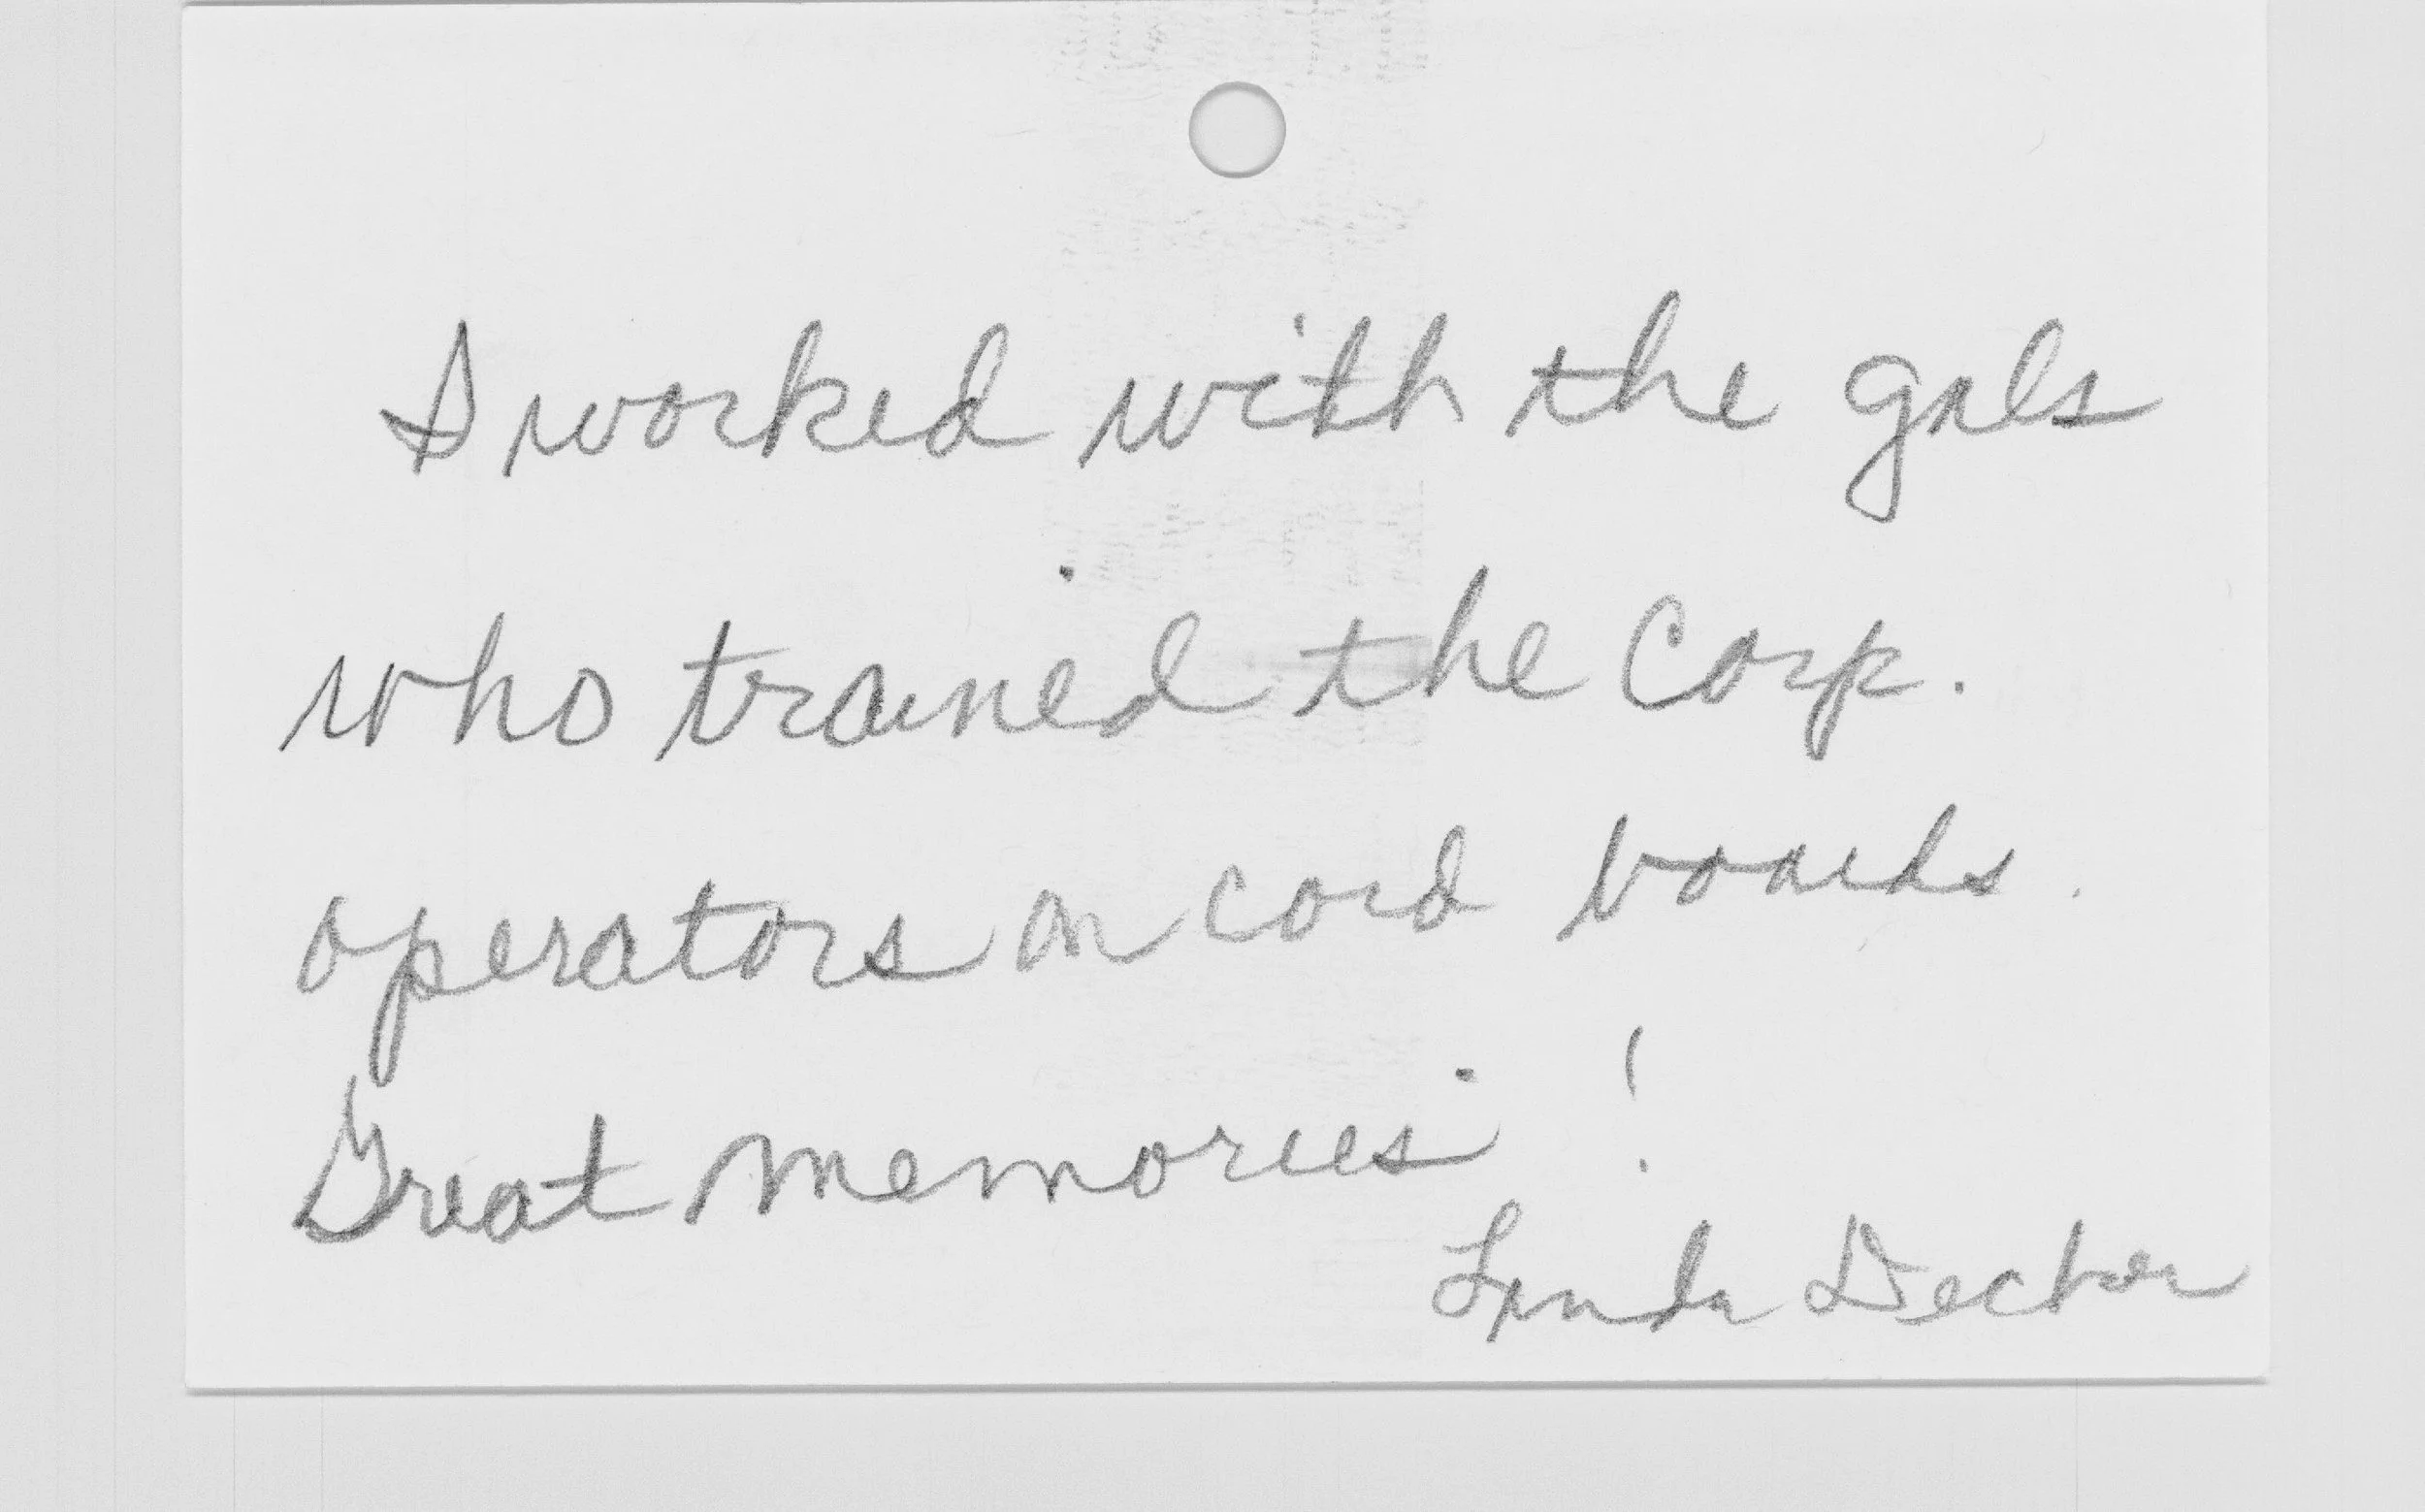 I worked with the gals
who trained the Corp.
operators on cord boards.
Great memories!
Lynda Decker